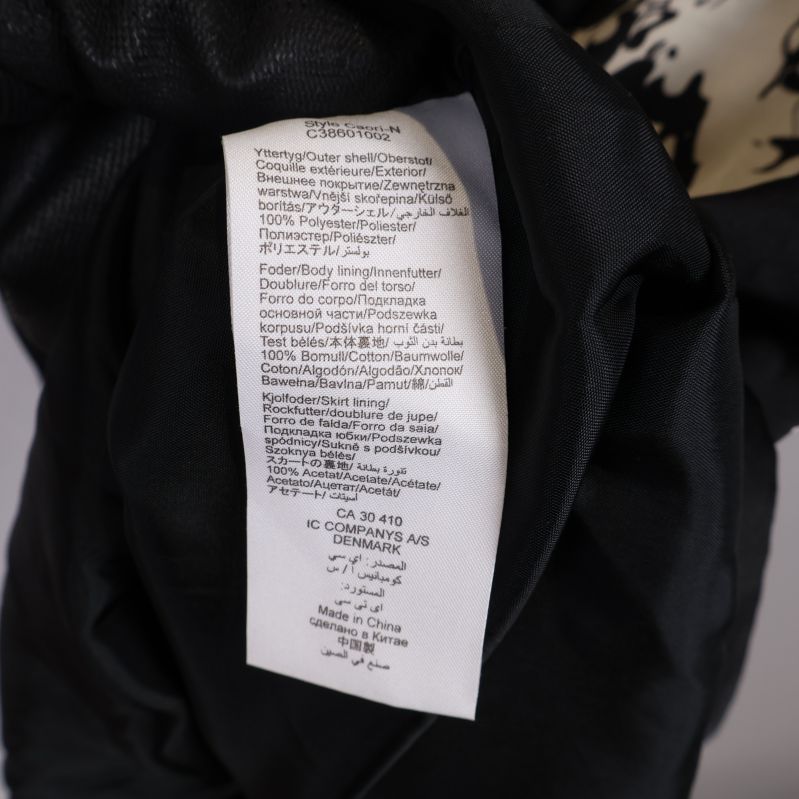 Style Caori-N
C38601002
Yttertyg/Outer shell/Oberstof/
Coquille extérieure/Exterior/
Внешнее покрытие/Zewnętrzna
warstwa/Vnější skořepina/Külső
borítás/アウターシェル/الغلاف الخارجي/
100% Polyester/Poliester/
Полиэстер/Poliészter/
ポリエステル/بولستر
Foder/Body lining/Innenfutter/
Doublure/Forro del torso/
Forro do corpo/Подкладка
основной части/Podszewka
korpusu/Podšívka horní části/
Test bélés/本体裏地/بطانة بدن الثوب
100% Bomull/Cotton/Baumwolle/
Coton/Algodón/Algodão/Хлопок/
Bawełna/Bavlna/Pamut/綿/القطن
Kjolfoder/Skirt lining/
Rockfutter/doublure de jupe/
Forro de falda/Forro da saia/
Подкладка юбки/Podszewka
spódnicy/Sukně s podšívkou/
Szoknya bélés/
スカートの裏地/تنورة بطانة
100% Acetat/Acetate/Acétate/
Acetato/Ацетат/Acetát/
アセテート/أسيتات
CA 30 410
IC COMPANYS A/S
DENMARK
المصدر: اي سي
كومبانيس أ / س
المستورد:
اي تي سي
Made in China
сделано в Китае
中国製
صنع في الصين